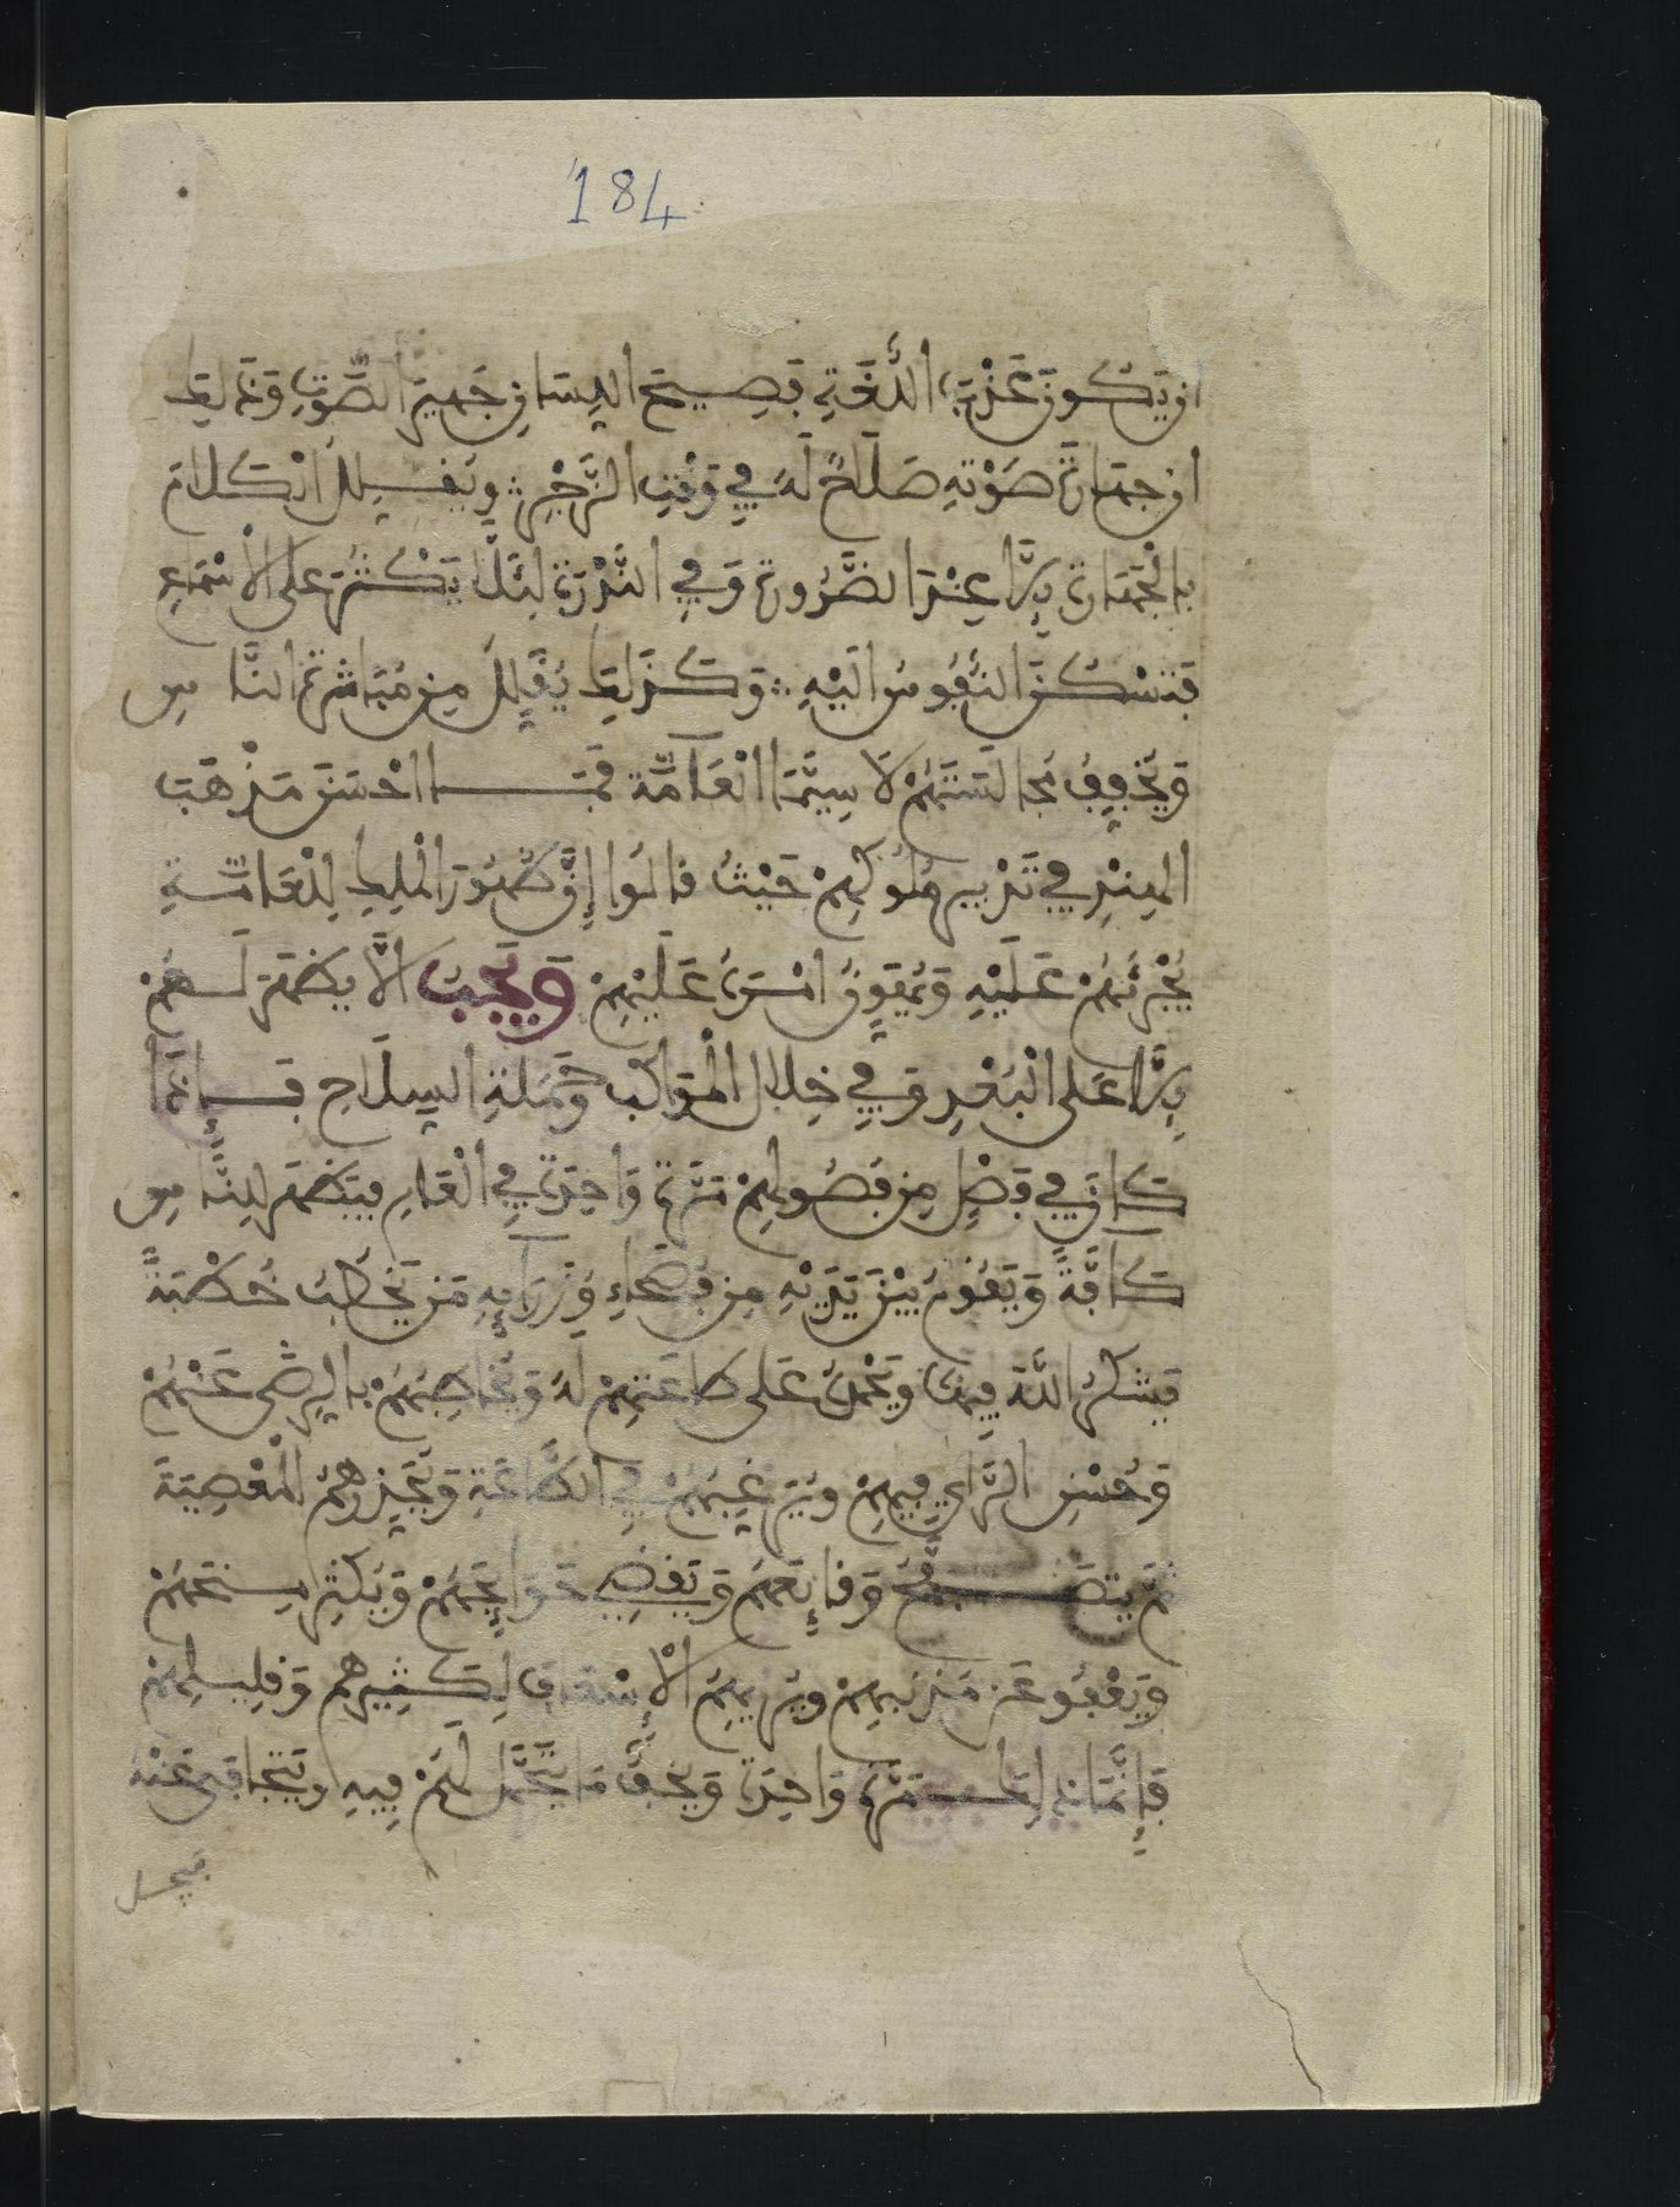 184
ان يكون عَذْبَ اللُّغَةِ فصيحَ اللِّسَانِ جَهيرَ الصَّوْتِ وَذَلِكَ
ان جهارة صَوْتِهِ صَلَاحٌ لَهُ فِي وَقْتِ الزَّجْرِ ؞ ويُقَلِّلَ الْكَلامَ
بالْجَهَارَةِ إِلَّا عِنْدَ الضَّرُورةِ وَفِي النَّدْرَةِ لِئَلَّا يَكْثُرَ على الأسْمَاعِ
فَتَسْكُنَ النُّفُوسُ الَيْهِ ؞ وَكَذَلِكَ يُقَلِّلَ مِن مُبَاشَرَةِ النَّاسِ
وَيُخَفِّفَ مُجَالَسَتَهُمْ لَا سِيَّمَا الْعَامَّة فَمَا احْسَنَ مَذْهَبَ
الهِنْدِ فِي تَدْبِيرِ مُلُوكِهِمْ حَيْثُ قالُوا إِنَّ ظُهُورَ الْمَلِكِ لِلْعَامَّةِ
يُجَرِّئُهُمْ عَلَيْهِ وَيُهَوِّنُ امْرَهُ عَلَيْهِمْ وَيَجِبُ الَّا يظهَرَ لَهُمْ
إِلَّا عَلى الْبُعْدِ وَفِي خِلالِ الْمَوَاكِبِ وحَمَلَةِ السِّلَاحِ فَإِذَا
كَانَ فِي فَصْلٍ مِن فُصُولِهِمْ مَرَّةً وَاحِدَةً فِي الْعَامِ فيَظْهَر لِلنَّاسِ
كَافَّةً وَيَقُومُ بَيْنَ يَدَيْهِ مِن فُصَحَاءِ وُزَرَايِهِ مَن يَخْطُبُ خُطْبَةً
فيَشْكُرُ اللَّهَ فِيهَا ويَحْمَدُهُ عَلى طاعَتِهِمْ لَهُ وَيُخَاطِبُهُمْ بالرِّضَى عَنْهُمْ
وَحُسْنِ الرَّأيِ فِيهِمْ ويُرَغِّبُهُمْ فِي الطَّاعَةِ وَيُحَذِّرُهُمُ الْمَعْصِيَةَ
ثم يتصَفَّحُ وَقَائِعَهُمْ وَيَقْضِي حَوَائِجَهُمْ وَيُكْثِرُ مِنَحَهُمْ
وَيَعْفُو عَن مُذْنِبِهِمْ ويُرِيهِمُ الْإِشْفَاقَ لِكَثِيرِهِمْ وَقَلِيلِهِمْ
فَإِنَّمَا ذلِكَ مَرَّةً وَاحِدَةً وَيَخِفُّ مَا يَتَحَمَّل لَهُمْ فِيهِ ويَتَجَافَى عَنْهُ